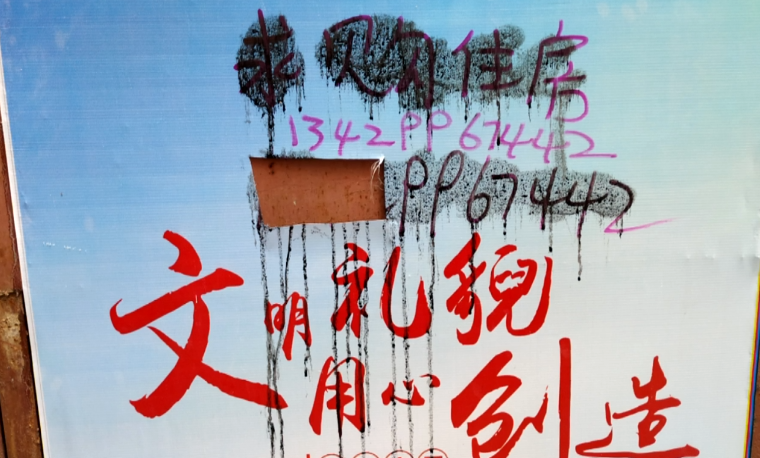 求购住房
13429967442
9967442
文明礼貌
用心创造